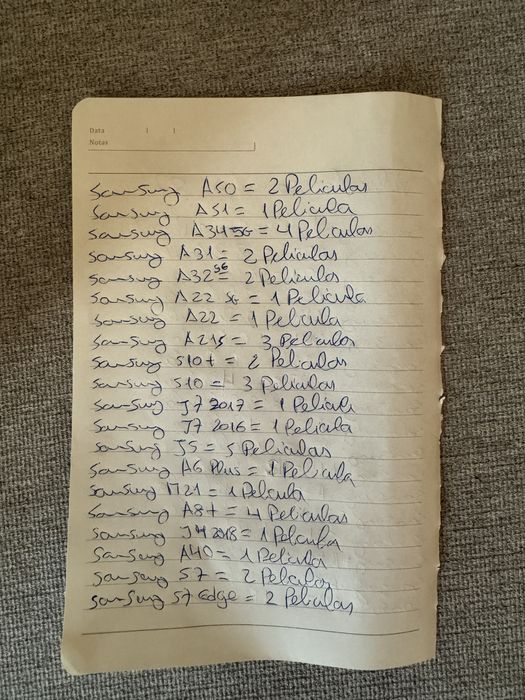 Data
Notas
Samsung A50 = 2 Peliculas
Samsung A51 = 1 Pelicula
Samsung A34 5G = 4 Peliculas
Samsung A31 = 2 Peliculas
Samsung A32 5G = 2 Peliculas
Samsung A22 5G = 1 Pelicula
Samsung A22 = 1 Pelicula
Samsung A21S = 3 Peliculas
Samsung S10+ = 2 Peliculas
Samsung S10 = 3 Peliculas
Samsung J7 2017 = 1 Pelicula
Samsung J7 2016 = 1 Pelicula
Samsung J5 = 5 Peliculas
Samsung A6 Plus = 1 Pelicula
Samsung M21 = 1 Pelicula
Samsung A8+ = 4 Peliculas
Samsung J4 2018 = 1 Pelicula
Samsung A40 = 1 Pelicula
Samsung S7 = 2 Peliculas
Samsung S7 edge = 2 Peliculas